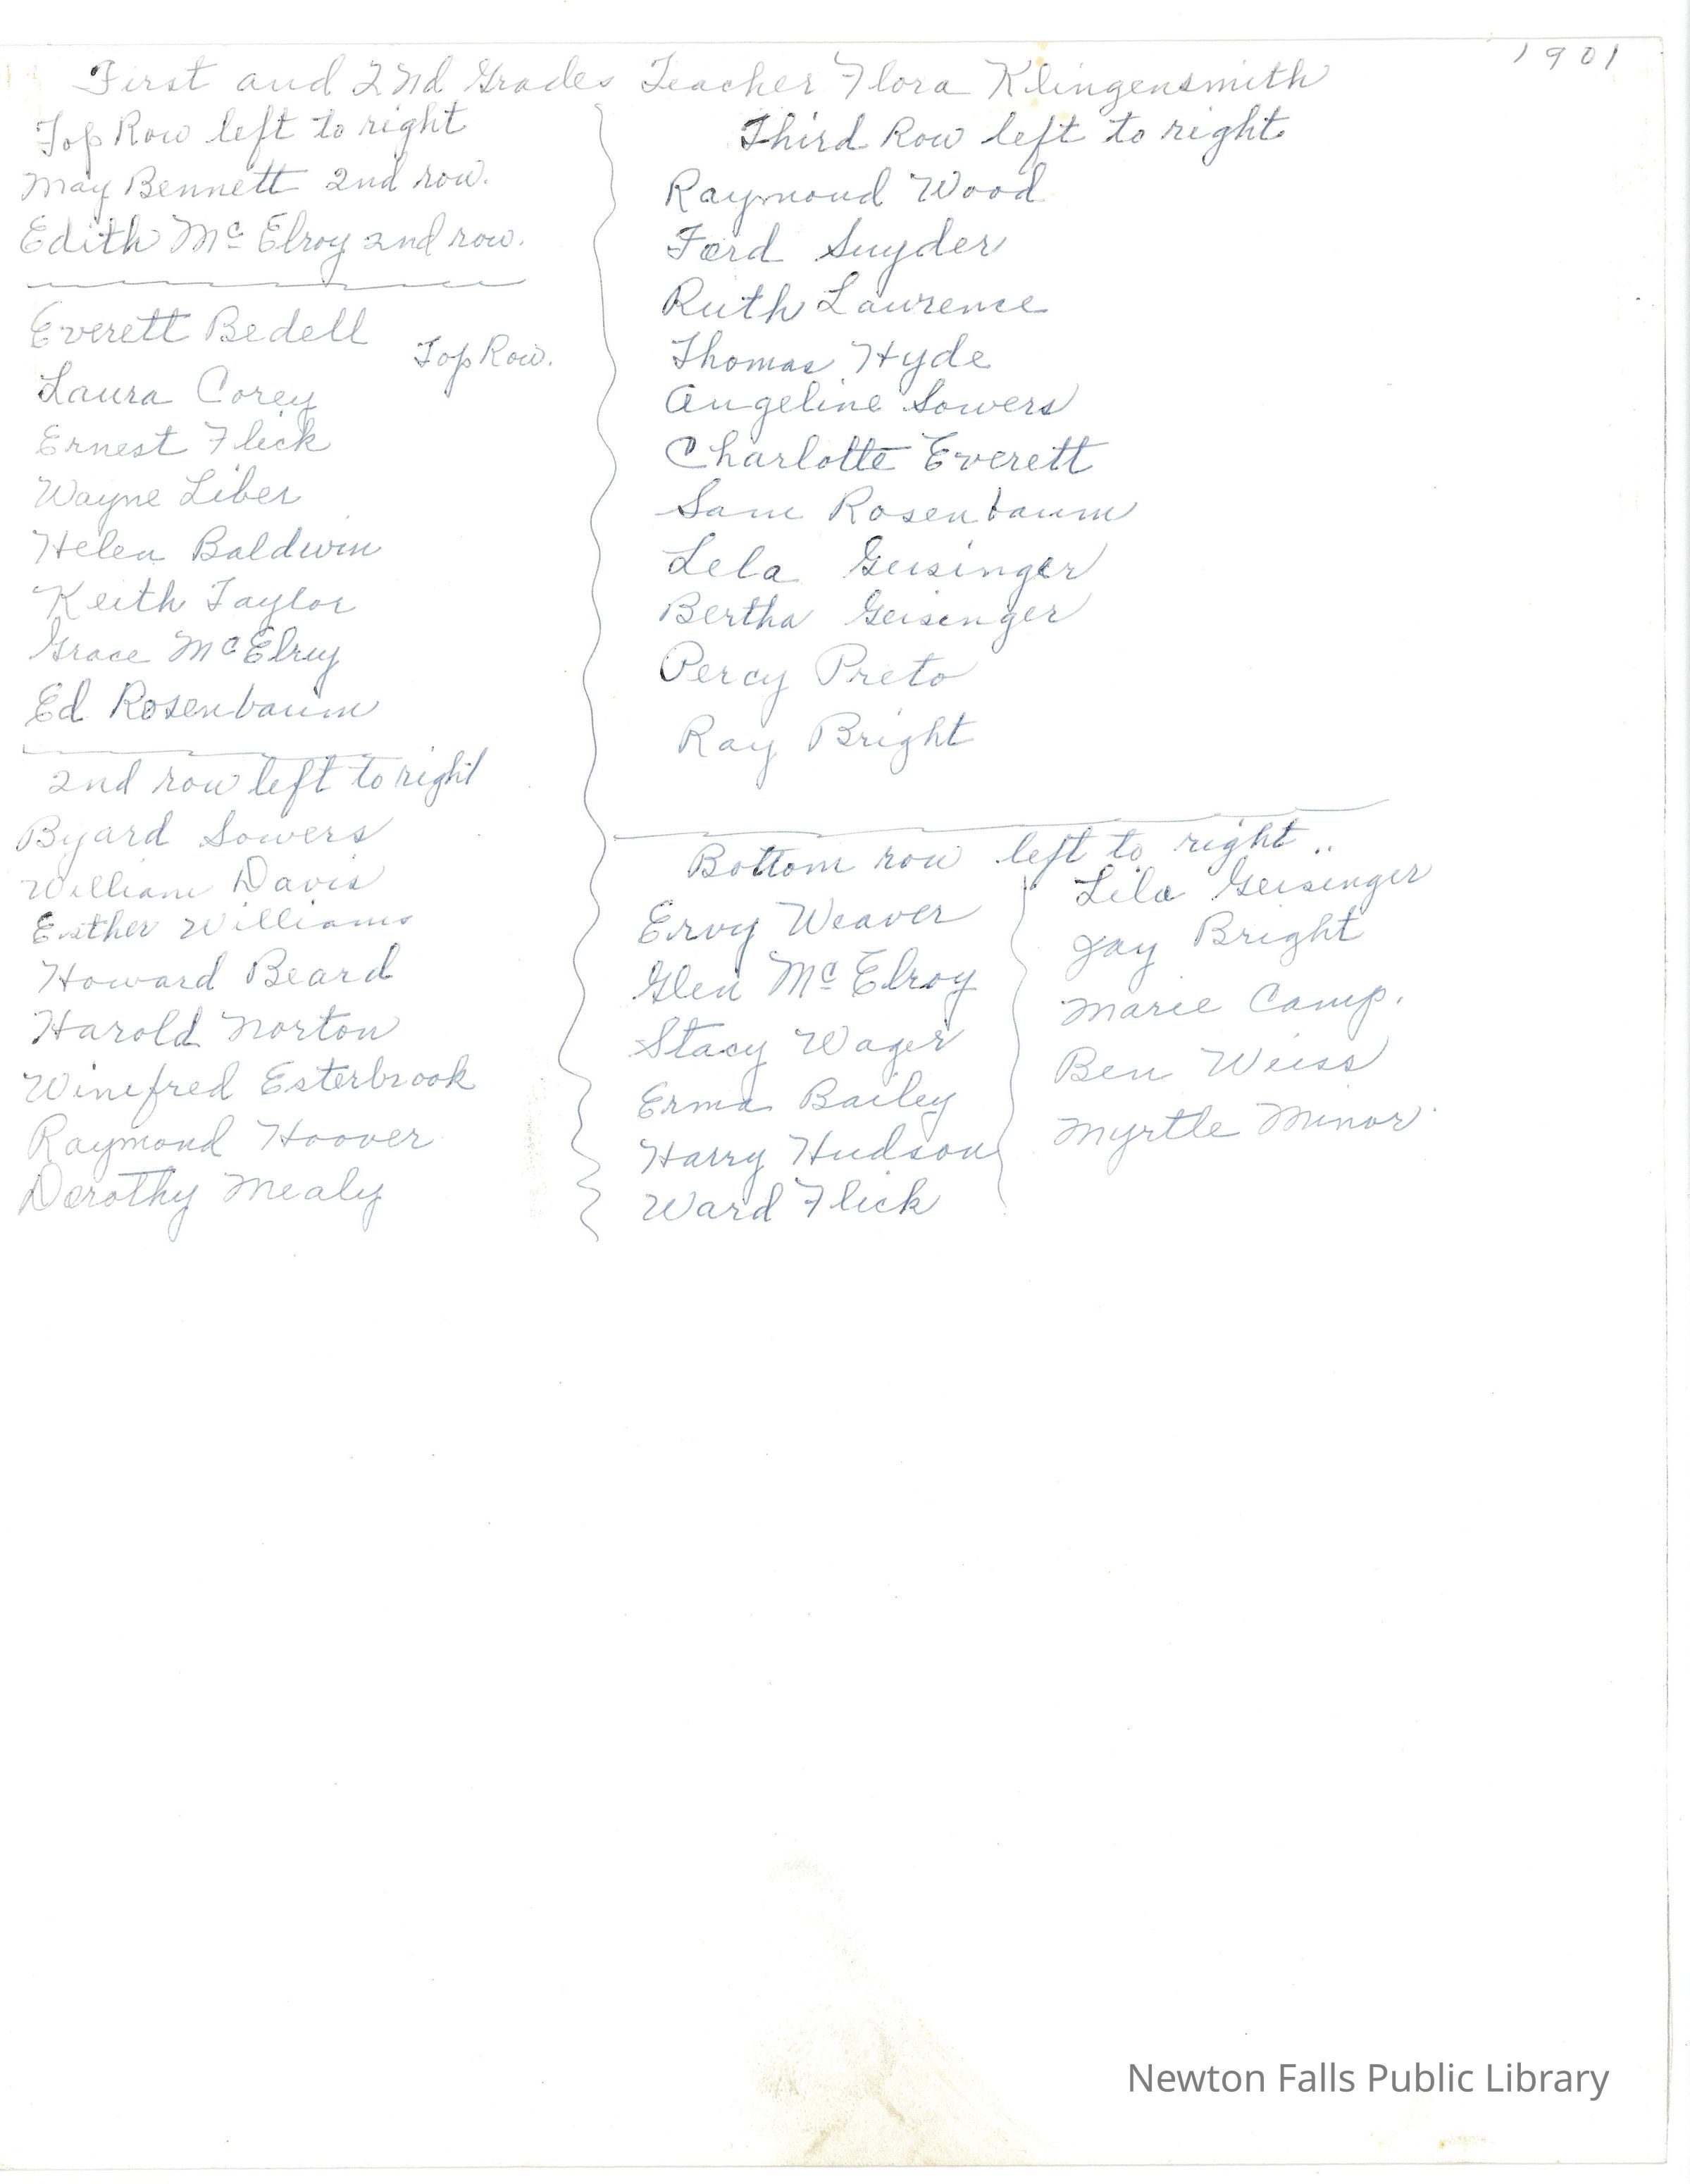 1901
First and 2nd Grades Teacher Flora Klingensmith
Top Row left to right
May Bennett 2nd row.
Edith Mc Elroy 2nd row.
Everett Bedell
Top Row.
Laura Corey
Ernest Flick
Wayne Liber
Helen Baldwin
Keith Taylor
Grace McElroy
Ed Rosenbaum
2nd row left to right
Byard Sowers
William Davis
Esther Williams
Howard Beard
Harold Norton
Winifred Esterbrook
Raymond Hoover
Dorothy Mealy
Third Row left to right
Raymond Wood
Ford Snyder
Ruth Laurence
Thomas Hyde
Angeline Sowers
Charlotte Everett
Sam Rosenbaum
Lela Geisinger
Bertha Geisinger
Percy Preto
Ray Bright
Bottom row left to right..
Ervy Weaver
Glen Mc Elroy
Stacy Wager
Erma Bailey
Harry Hudson
Ward Flick
Lila Geisinger
Jay Bright
Marie Camp.
Ben Weiss
Myrtle Minor.
Newton Falls Public Library